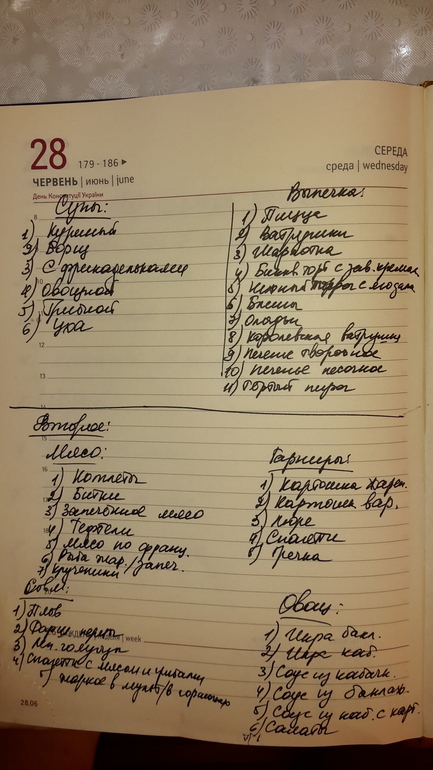 28 179 - 186 ▶
ЧЕРВЕНЬ | июнь | june
День Конституції України
СЕРЕДА
среда | wednesday
8
Супы:
1) Куриный
2) Борщ
3) С фрикадельками
4) Овощной
5) Грибной
6) Уха
12
13
Выпечка:
1) Пицца
2) Ватрушки
3) Шарлотка
4) Бискв. торт с зав. кремом
5) пирог с ягодами
6) Блины
7) Оладьи
8) Королевская ватрушка
9) Печенье творожное
10) печенье песочное
11) Тёртый пирог
Второе:
Мясо:
1) Котлеты
2) Битки
3) Запечённое мясо
4) Тефтели
5) Мясо по франц.
6) Рыба жар./запеч.
7) крученики
Гарниры:
1) Картошка жарен.
2) Картошка вар.
3) Пюре
4) Спагетти
5) Гречка
1) Плов
2) Фарш. перец
3) голубцы
4) Спагетти с мясом и грибами
5) жаркое в мульт/в горшочках
week
Овощ:
1) Икра бакл.
2) Икра каб.
3) Соус из кабачк.
4) Соус из баклаж.
5) Соус из каб. с карт.
6) Салаты
28.06